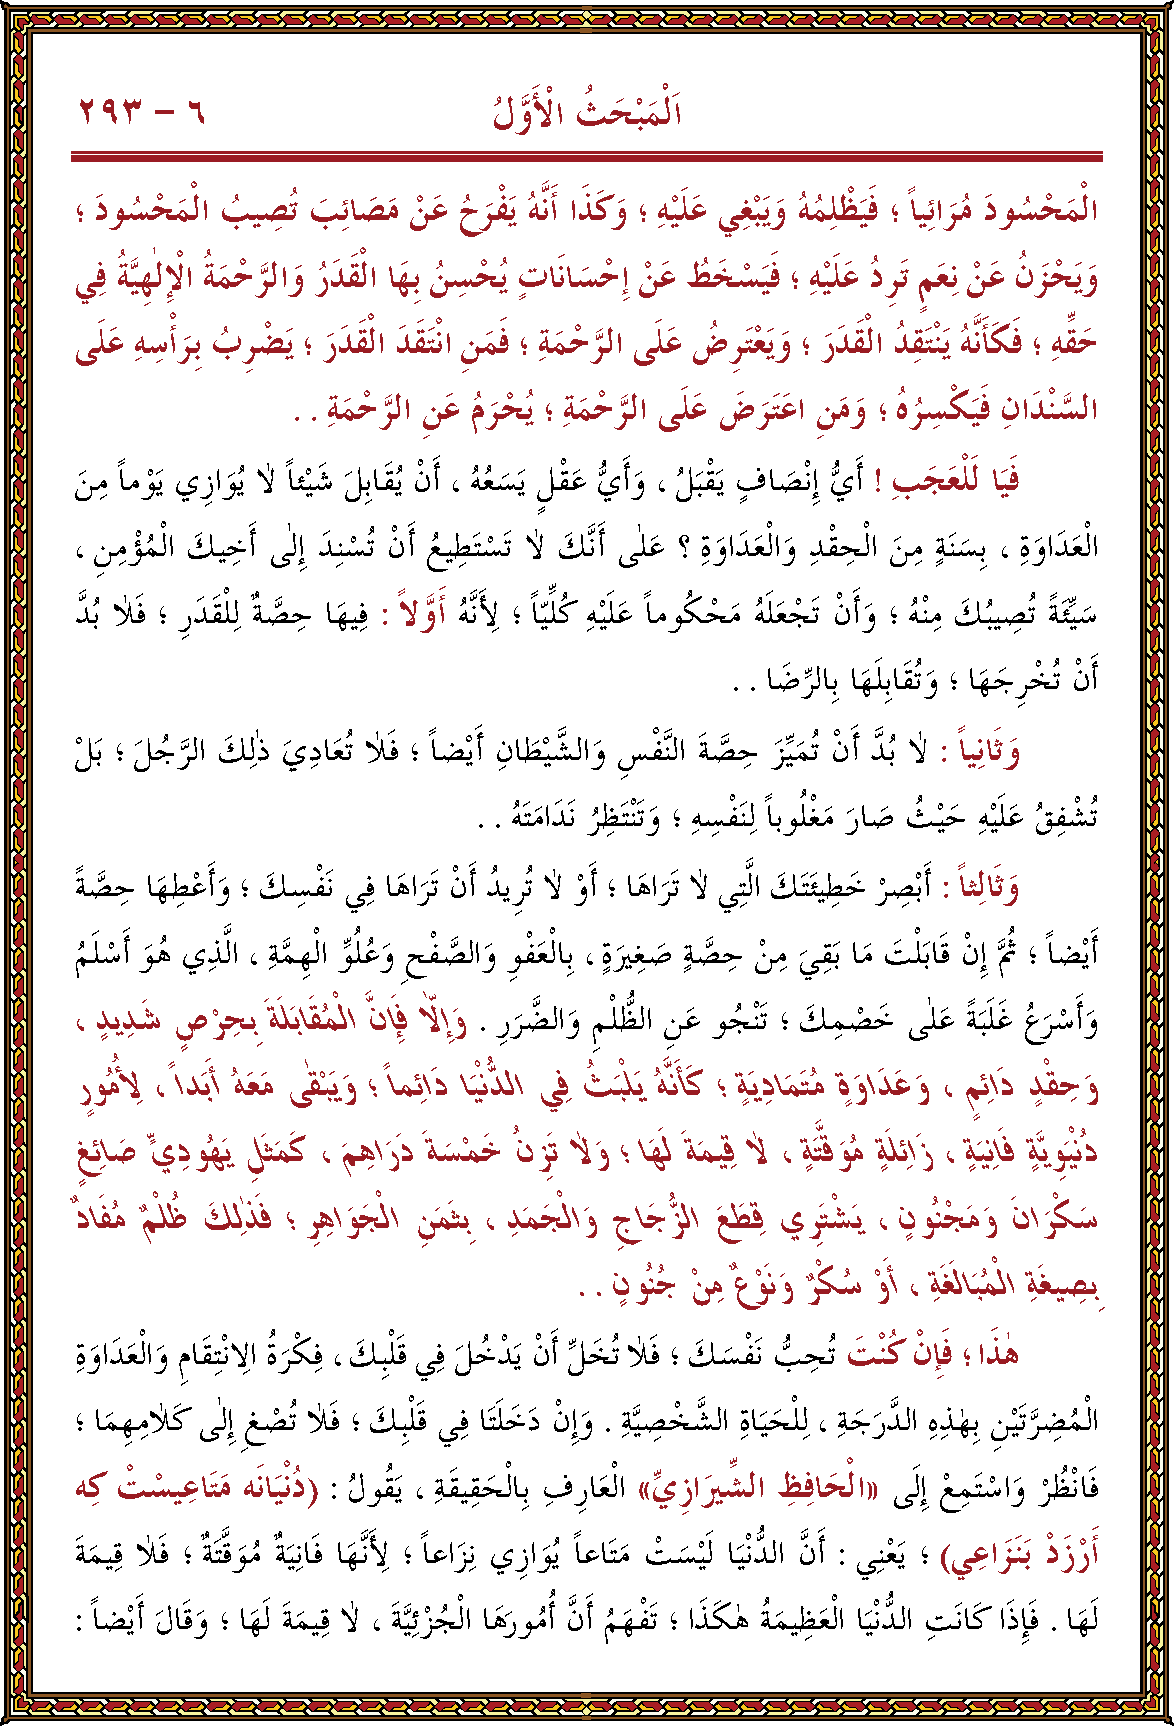 اَلْمَبْحَثُ الْأَوَّلُ ٦ – ٢٩٣
الْمَحْسُودَ مُرَائِياً ؛ فَيَظْلِمُهُ وَيَبْغِي عَلَيْهِ ؛ وَكَذَا أَنَّهُ يَفْرَحُ عَنْ مَصَائِبَ تُصِيبُ الْمَحْسُودَ ؛
وَيَحْزَنُ عَنْ نِعَمٍ تَرِدُ عَلَيْهِ ؛ فَيَسْخَطُ عَنْ إِحْسَانَاتٍ يُحْسِنُ بِهَا الْقَدَرُ وَالرَّحْمَةُ الْإِلٰهِيَّةُ فِي
حَقِّهِ ؛ فَكَأَنَّهُ يَنْتَقِدُ الْقَدَرَ ؛ وَيَعْتَرِضُ عَلَى الرَّحْمَةِ ؛ فَمَنِ انْتَقَدَ الْقَدَرَ ؛ يَضْرِبُ بِرَأْسِهِ عَلَى
السَّنْدَانِ فَيَكْسِرُهُ ؛ وَمَنِ اعْتَرَضَ عَلَى الرَّحْمَةِ ؛ يُحْرَمُ عَنِ الرَّحْمَةِ . .
فَيَا لَلْعَجَبِ ! أَيُّ إِنْصَافٍ يَقْبَلُ ، وَأَيُّ عَقْلٍ يَسَعُهُ ، أَنْ يُقَابِلَ شَيْئاً لاَ يُوَازِي يَوْماً مِنَ
الْعَدَاوَةِ ، بِسَنَةٍ مِنَ الْحِقْدِ وَالْعَدَاوَةِ ؟ عَلٰى أَنَّكَ لاَ تَسْتَطِيعُ أَنْ تُسْنِدَ إِلٰى أَخِيكَ الْمُؤْمِنِ ،
سَيِّئَةً تُصِيبُكَ مِنْهُ ؛ وَأَنْ تَجْعَلَهُ مَحْكُوماً عَلَيْهِ كُلِّيّاً ؛ لِأَنَّهُ أَوَّلاً : فِيهَا حِصَّةٌ لِلْقَدَرِ ؛ فَلاَ بُدَّ
أَنْ تُخْرِجَهَا ؛ وَتُقَابِلَهَا بِالرِّضَا . .
وَثَانِياً : لاَ بُدَّ أَنْ تُمَيِّزَ حِصَّةَ النَّفْسِ وَالشَّيْطَانِ أَيْضاً ؛ فَلاَ تُعَادِيَ ذٰلِكَ الرَّجُلَ ؛ بَلْ
تُشْفِقُ عَلَيْهِ حَيْثُ صَارَ مَغْلُوباً لِنَفْسِهِ ؛ وَتَنْتَظِرُ نَدَامَتَهُ . .
وَثَالِثاً : أَبْصِرْ خَطِيئَتَكَ الَّتِي لاَ تَرَاهَا ؛ أَوْ لاَ تُرِيدُ أَنْ تَرَاهَا فِي نَفْسِكَ ؛ وَأَعْطِهَا حِصَّةً
أَيْضاً ؛ ثُمَّ إِنْ قَابَلْتَ مَا بَقِيَ مِنْ حِصَّةٍ صَغِيرَةٍ ، بِالْعَفْوِ وَالصَّفْحِ وَعُلُوِّ الْهِمَّةِ ، الَّذِي هُوَ أَسْلَمُ
وَأَسْرَعُ غَلَبَةً عَلٰى خَصْمِكَ ؛ تَنْجُو عَنِ الظُّلْمِ وَالضَّرَرِ . وَإِلاَّ فَإِنَّ الْمُقَابَلَةَ بِحِرْصٍ شَدِيدٍ ،
وَحِقْدٍ دَائِمٍ ، وَعَدَاوَةٍ مُتَمَادِيَةٍ ؛ كَأَنَّهُ يَلْبَثُ فِي الدُّنْيَا دَائِماً ؛ وَيَبْقٰى مَعَهُ أَبَداً ، لِأُمُورٍ
دُنْيَوِيَّةٍ فَانِيَةٍ ، زَائِلَةٍ مُوَقَّتَةٍ ، لاَ قِيمَةَ لَهَا ؛ وَلاَ تَزِنُ خَمْسَةَ دَرَاهِمَ ، كَمَثَلِ يَهُودِيٍّ صَائِغٍ
سَكْرَانَ وَمَجْنُونٍ ، يَشْتَرِي قِطَعَ الزُّجَاجِ وَالْجَمَدِ ، بِثَمَنِ الْجَوَاهِرِ ؛ فَذٰلِكَ ظُلْمٌ مُفَادٌ
بِصِيغَةِ الْمُبَالَغَةِ ، أَوْ سُكْرٌ وَنَوْعٌ مِنْ جُنُونٍ . .
هٰذَا ؛ فَإِنْ كُنْتَ تُحِبُّ نَفْسَكَ ؛ فَلاَ تُخَلِّ أَنْ يَدْخُلَ فِي قَلْبِكَ ، فِكْرَةُ الاِنْتِقَامِ وَالْعَدَاوَةِ
الْمُضِرَّتَيْنِ بِهٰذِهِ الدَّرَجَةِ ، لِلْحَيَاةِ الشَّخْصِيَّةِ . وَإِنْ دَخَلَتَا فِي قَلْبِكَ ؛ فَلاَ تُصْغِ إِلٰى كَلاَمِهِمَا ؛
فَانْظُرْ وَاسْتَمِعْ إِلَى «الْحَافِظِ الشِّيرَازِيِّ» الْعَارِفِ بِالْحَقِيقَةِ ، يَقُولُ : (دُنْيَانَه مَتَاعِيسْتْ كِه
أَرْزَدْ بَنَزَاعِي) ؛ يَعْنِي : أَنَّ الدُّنْيَا لَيْسَتْ مَتَاعاً يُوَازِي نِزَاعاً ؛ لِأَنَّهَا فَانِيَةٌ مُوَقَّتَةٌ ؛ فَلاَ قِيمَةَ
لَهَا . فَإِذَا كَانَتِ الدُّنْيَا الْعَظِيمَةُ هٰكَذَا ؛ تَفْهَمُ أَنَّ أُمُورَهَا الْجُزْئِيَّةَ ، لاَ قِيمَةَ لَهَا ؛ وَقَالَ أَيْضاً :